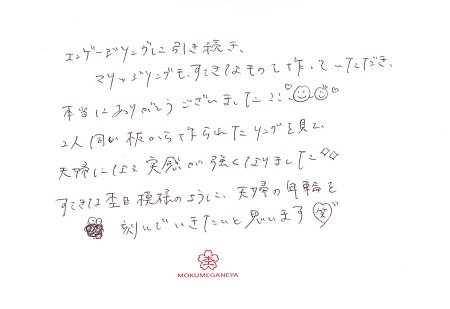 エンゲージリングに引き続き、
マリッジリングも、すてきなものを作っていただき、
本当にありがとうございました!!
2人同じ板から作られたリングを見て、
夫婦になる実感が強くなりました
すてきな杢目模様のように、夫婦の年輪を
刻んでいきたいと思います 笑
MOKUMEGANEYA